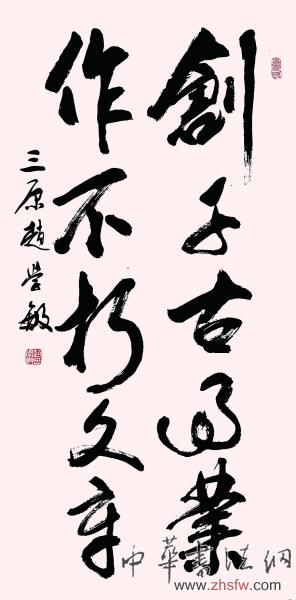 創千古事業
作不朽文章
三原趙学敏
中華書法網
www.zhsfw.com